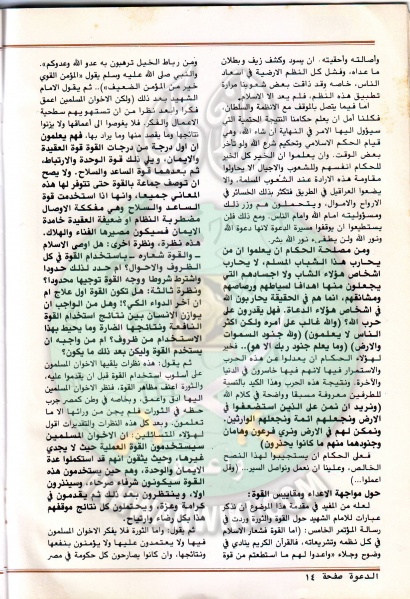 وأصالته وأحقيته. ان يسود وكشف زيف وبطلان
ما عداه، وفشل كل النظم الارضية في اسعاد
الناس، خاصة وقد ذاقت بعض شعوبنا مرارة
تطبيق هذه النظم. فلم يعد الا الاسلام.
اما فيما يتصل بالموقف مع الانظمة والسلطان،
فكلنا أمل ان يعلم حكامنا النتيجة الحتمية التي
سيؤول اليها الامر في النهاية ان شاء الله، وهي
قيام الحكم الاسلامي وتحكيم شرع الله ولو تأخر
بعض الوقت. وان يعلموا ان الخير كل الخير
للحكام انفسهم وللشعوب والاجيال الا يحاولوا
مقاومة هذه الارادة عند الشعوب المسلمة، والا
يضعوا العراقيل في الطريق فتكثر بذلك الخسائر في
الارواح والاموال، ويتحملون هم وزر ذلك
ومسؤوليته امام الله وامام الناس. ومع ذلك فلن
يستطيعوا ان يوقفوا مسيرة الدعوة لانها دعوة الله
ونور الله ولن يطفيء نور الله بشر.
ومن مصلحة الحكام ان يعلموا ان من
يحارب هذا الشباب المسلم، لا يحارب
اشخاص هؤلاء الشباب ولا اجسادهم التي
يجعلون منها اهدافا لسياطهم ورصاصهم
ومشانقهم، انما هم في الحقيقة يحاربون الله
في اشخاص هؤلاء الدعاة. فهل يقدرون على
حرب الله؟ (والله غالب على أمره ولكن اكثر
الناس لا يعلمون) (ولله جنود السموات
والارض) (وما يعلم جنود ربك الا هو).. فخير
لهؤلاء الحكام ان يعدلوا عن هذه الحرب
والاستمرار فيها لانهم فيها خاسرون في الدنيا
والآخرة، ونتيجة هذه الحرب وهذا الكيد بالنسبة
للطرفين معروفة مسبقا وواضحة في كلام الله
(ونريد ان نمن على الذين استضعفوا في
الارض ونجعلهم ائمة ونجعلهم الوارثين.
ونمكن لهم في الارض ونري فرعون وهامان
وجنودهما منهم ما كانوا يحذرون)
فعلى الحكام ان يستجيبوا لهذا النصح
الخالص، وعلينا ان نعمل ونواصل السير.. (وقل
اعملوا..)
حول مواجهة الاعداء ومقاييس القوة:
لعله من المفيد في مقدمة هذا الموضوع ان نذكر
عبارات للامام الشهيد حول القوة والثورة وردت في
رسالة المؤتمر الخامس: (اما القوة فشعار الاسلام
في كل نظمه وتشريعاته، فالقرآن الكريم ينادي في
وضوح وجلاء «واعدوا لهم ما استطعتم من قوة
ومن رباط الخيل ترهبون به عدو الله وعدوكم».
والنبي صلى الله عليه وسلم يقول «المؤمن القوي
خير من المؤمن الضعيف»).. ثم يقول الامام
الشهيد بعد ذلك (ولكن الاخوان المسلمين اعمق
فكرا وأبعد نظرا من ان تستهويهم سطحية
الاعمال والفكر، فلا يغوصوا الى أعماقها ولا يزنوا
نتائجها وما يقصد منها وما يراد بها، فهم يعلمون
ان اول درجة من درجات القوة قوة العقيدة
والايمان، ويلي ذلك قوة الوحدة والارتباط،
ثم بعدهما قوة الساعد والسلاح. ولا يصح
ان توصف جماعة بالقوة حتى تتوفر لها هذه
المعاني جميعا، وانها اذا استخدمت قوة
الساعد والسلاح وهي مفككة الاوصال
مضطربة النظام او ضعيفة العقيدة خامدة
الايمان فسيكون مصيرها الفناء والهلاك.
هذه نظرة، ونظرة اخرى: هل اوصى الاسلام
ـ والقوة شعاره ـ باستخدام القوة في كل
الظروف والاحوال؟ ام حدد لذلك حدودا
واشترط شروطا ووجه القوة توجيها محدودا؟
ونظرة ثالثة: هل تكون القوة اول علاج ام
ان آخر الدواء الكي؟! وهل من الواجب ان
يوازن الانسان بين نتائج استخدام القوة
النافعة ونتائجها الضارة وما يحيط بهذا
الاستخدام من ظروف؟ ام من واجبه ان
يستخدم القوة وليكن بعد ذلك ما يكون؟
ثم يقول: هذه نظرات يلقيها الاخوان المسلمون
على أسلوب استخدام القوة قبل ان يقدموا عليه،
والثورة اعنف مظاهر القوة، فنظر الاخوان المسلمين
اليها أدق وأعمق، وبخاصة في وطن كمصر جرب
حظه في الثورات فلم يجن من ورائها الا ما
تعلمون. وبعد كل هذه النظرات والتقديرات اقول
لهؤلاء المتسائلين: ان الاخوان المسلمين
سيستخدمون القوة العملية حيث لا يجدي
غيرها، وحيث يثقون انهم قد استكملوا عدة
الايمان والوحدة، وهم حين يستخدمون هذه
القوة سيكونون شرفاء صرحاء، وسينذرون
اولا، وينتظرون بعد ذلك ثم يقدمون في
كرامة وعزة، ويحتملون كل نتائج موقفهم
هذا بكل رضاء وارتياح.
ثم يقول: وأما الثورة فلا يفكر الاخوان المسلمون
فيها ولا يعتمدون عليها ولا يؤمنون بنفعها
ونتائجها، وان كانوا يصارحون كل حكومة في مصر
الدعوة صفحة ١٤